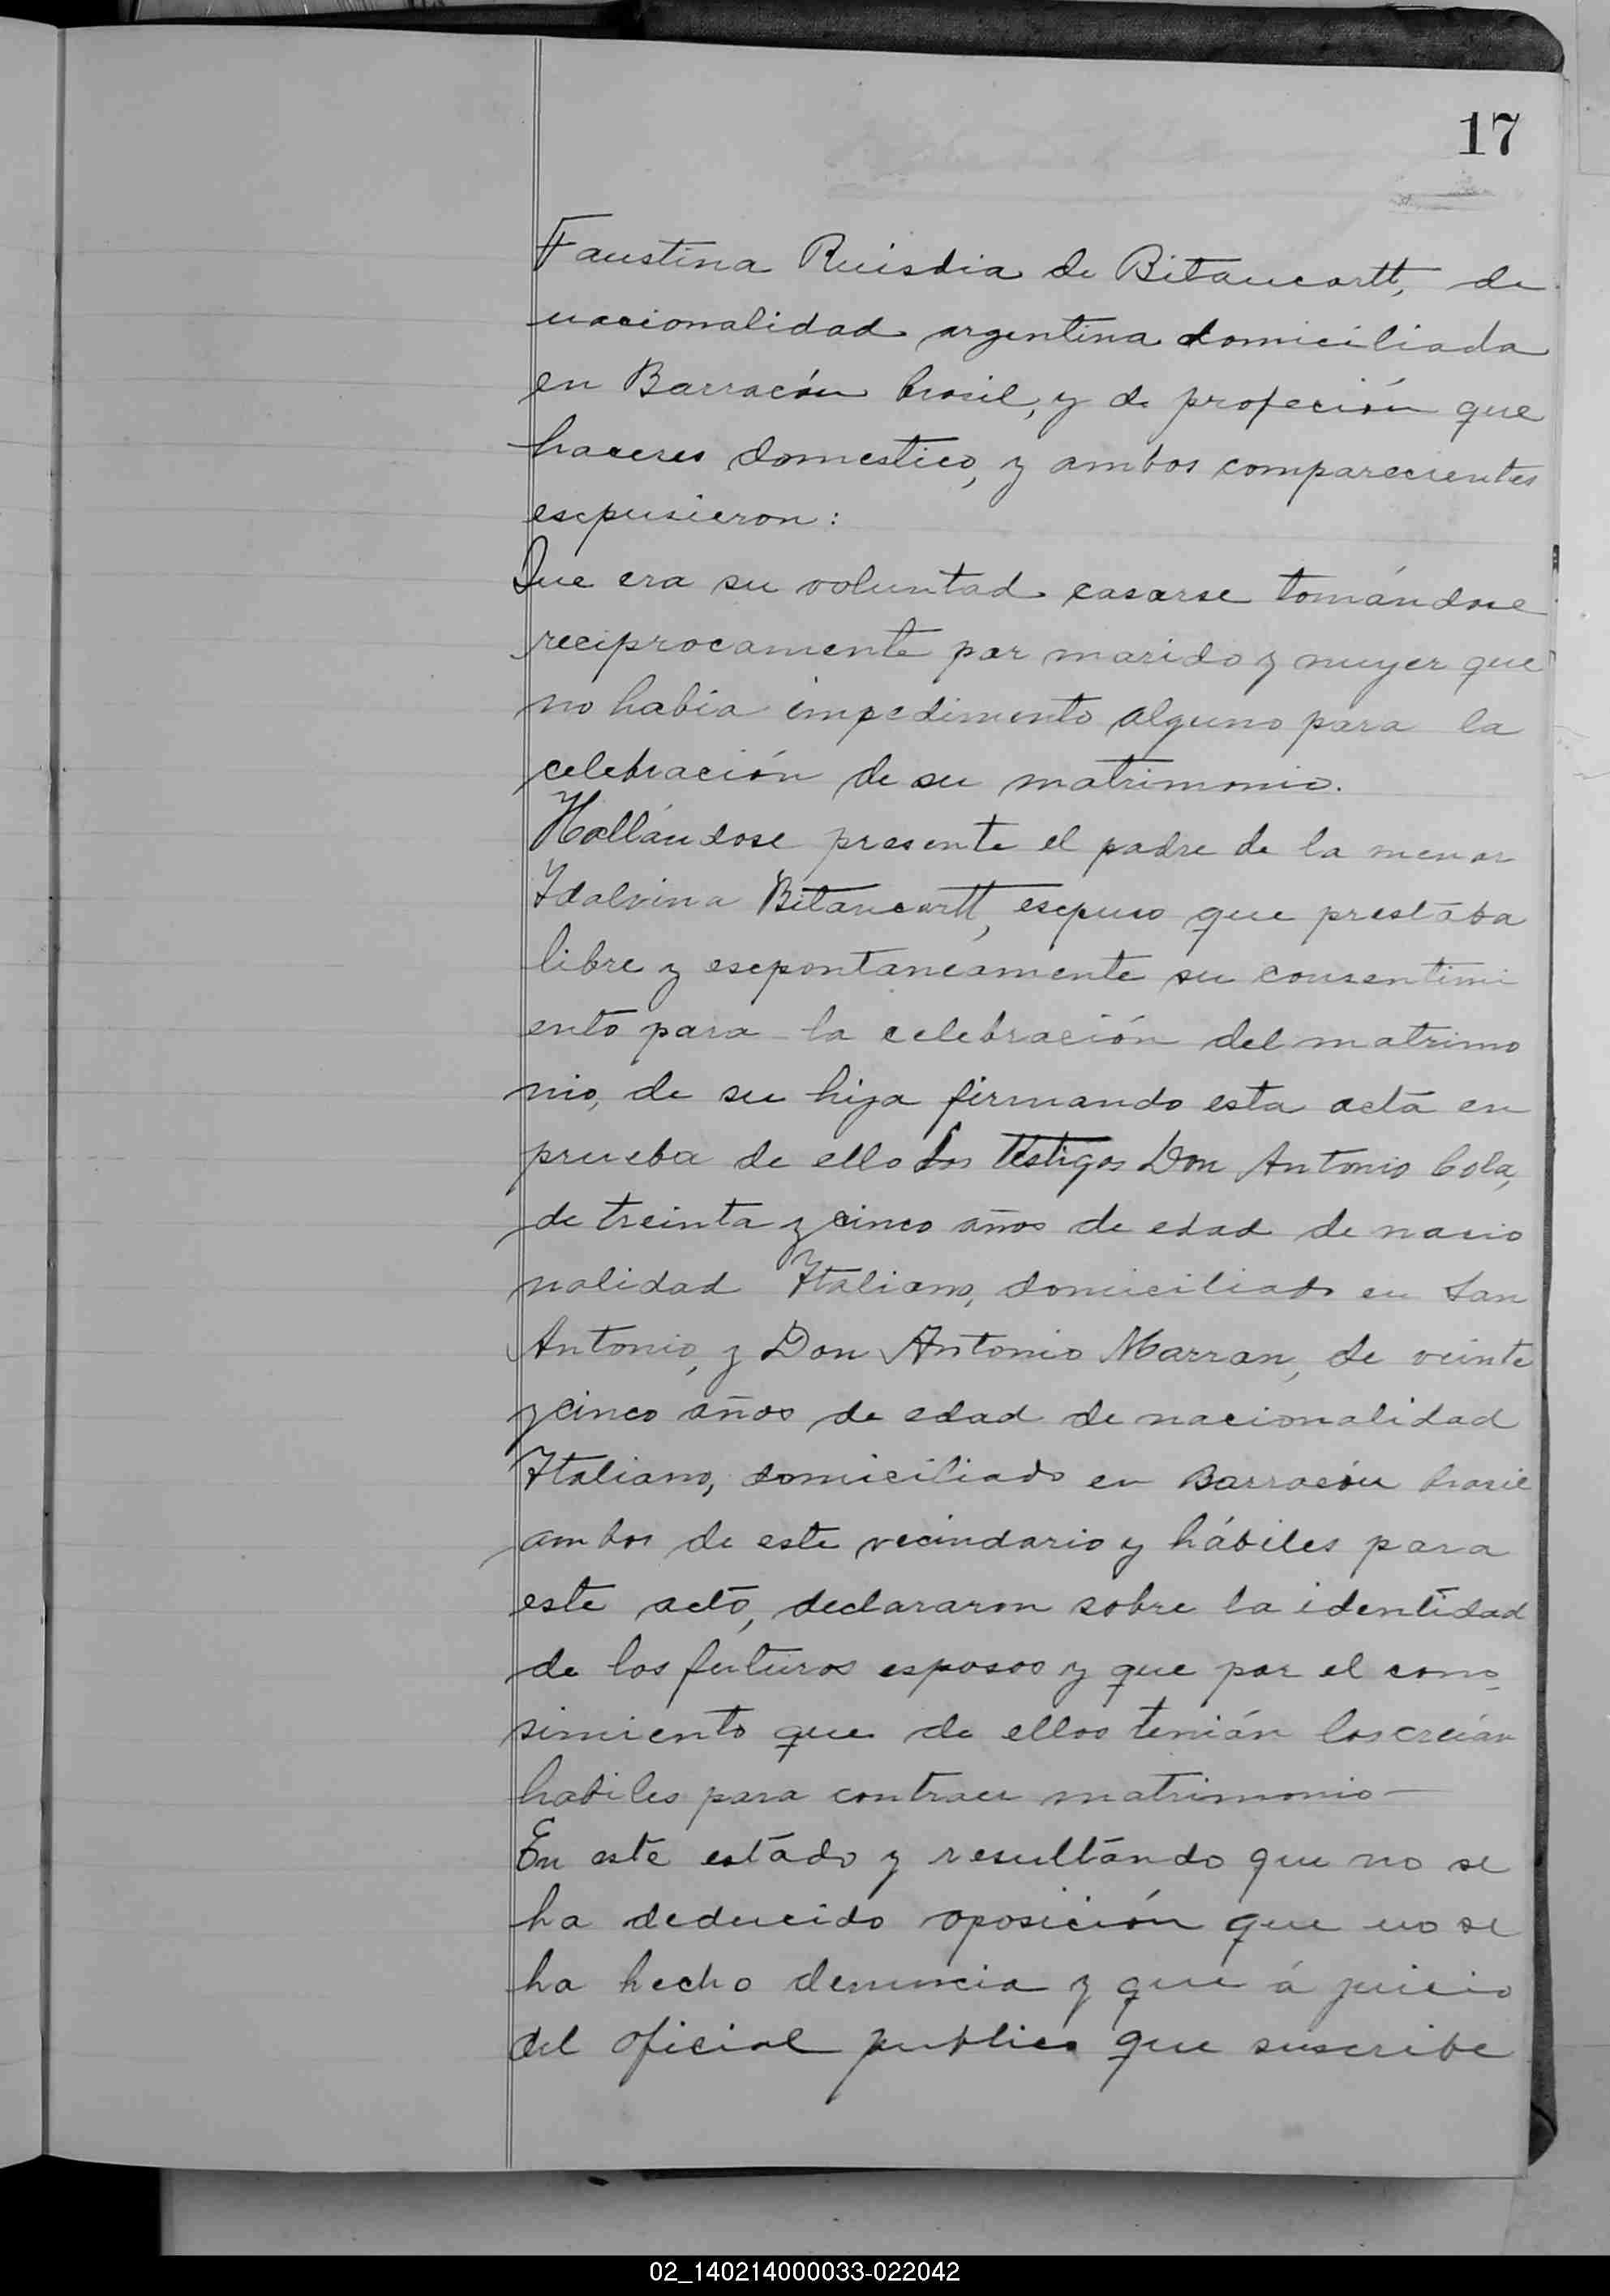 17
Faustina Ruisdia de Bitancortt, de
nacionalidad argentina domiciliada
en Barracón brasil, y de profeción que
haceres domestico, y ambos comparecientes
escpusieron:
Que era su voluntad casarse tomándose
reciprocamente por marido y muyer que
no habia impedimento alguno para la
celebración de su matrimonio.
Hallándose presente el padre de la menor
Idalvina Bitancortt, escpuso que prestaba
libre y escpontaneamente su consentimi
ento para la celebración del matrimo
nio, de su hija firmando esta acta en
prueba de ello Los testigos Don Antonio Cola,
de treinta y cinco años de edad de nacio
nalidad Italiano, domiciliado en San
Antonio, y Don Antonio Marran, de veinte
y cinco años de edad de nacionalidad
Italiano, domiciliado en Barracón brasil
ambos de este vecindario y hábiles para
este acto, declararon sobre la identidad
de los futuros esposos y que por el cono
simiento que de ellos tenián los creián
habiles para contraer matrimonio —
En este estado y resultando que no se
ha deducido oposición que no se
ha hecho denuncia y que á juicio
del oficial publico que suscribe
02_140214000033-022042